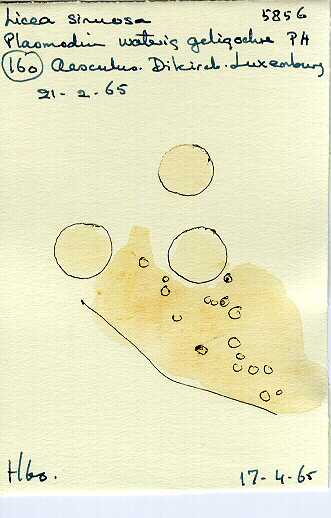 Licea sinuosa 5856
Plasmodium waterig geligochre PA
160 Aesculus. Dikirch. Luxemburg
21-2-65
H60. 17-4-65